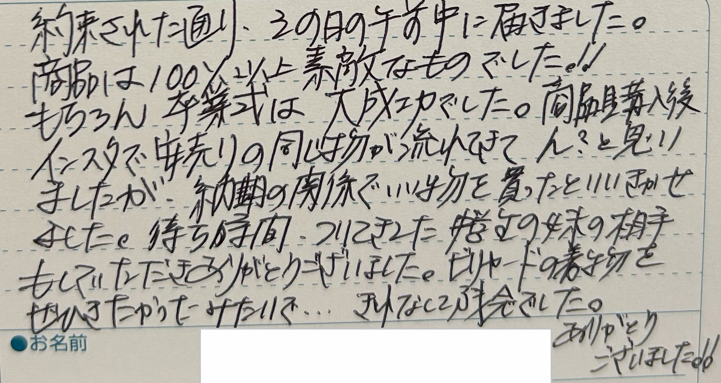 約束された通り、その日の午前中に届きました。
商品は100%以上素敵なものでした!!
もちろん卒業式は大成功でした。商品購入後
インスタで安売りの同じ物が流れてきてん?と思い
ましたが、納期の関係でいい物を買ったといいきかせ
ました。待ち時間、つれてきた 4才の妹の相手
もしていただきありがとうございました。ビリヤードの着物を
ぜひきたかったみたいで… きれなくて残念でした。
ありがとう
ございました!!
●お名前